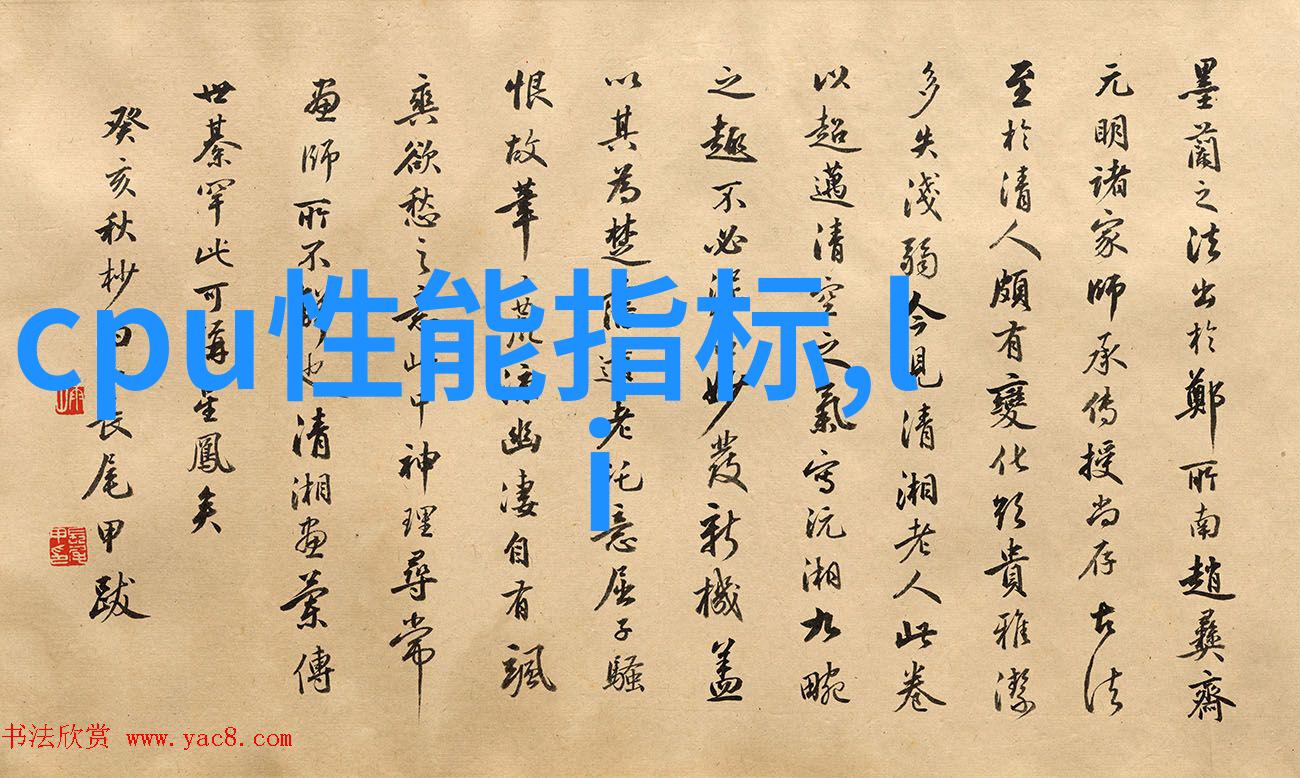 墨蘭之法出於鄭所南趙彝齋
元明諸家師承傳授尚存古法
至於清人頗有變化貴雅潔
多失淺弱今見清湘老人此卷
以超邁清空之氣寫沅湘九畹
之趣不必妙發新機蓋
以其為楚老託意屈子騷
恨故筆荒幽凄自有颯
爽欲愁之意此中神理尋常
畫師所不也清湘畫蘭傳
世綦罕此可稱星鳳矣
癸亥秋杪長尾甲跋
cpu性能指标,l
i
书法欣赏 www.yac8.com